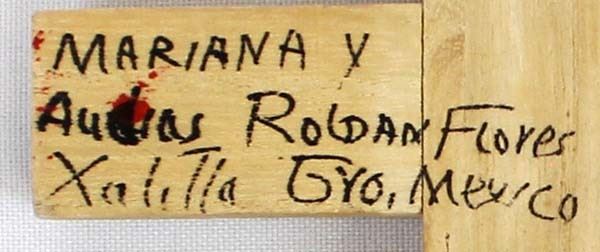 MARIANA Y
Audias ROLDAN Flores
XaliTla Gro. Mexico